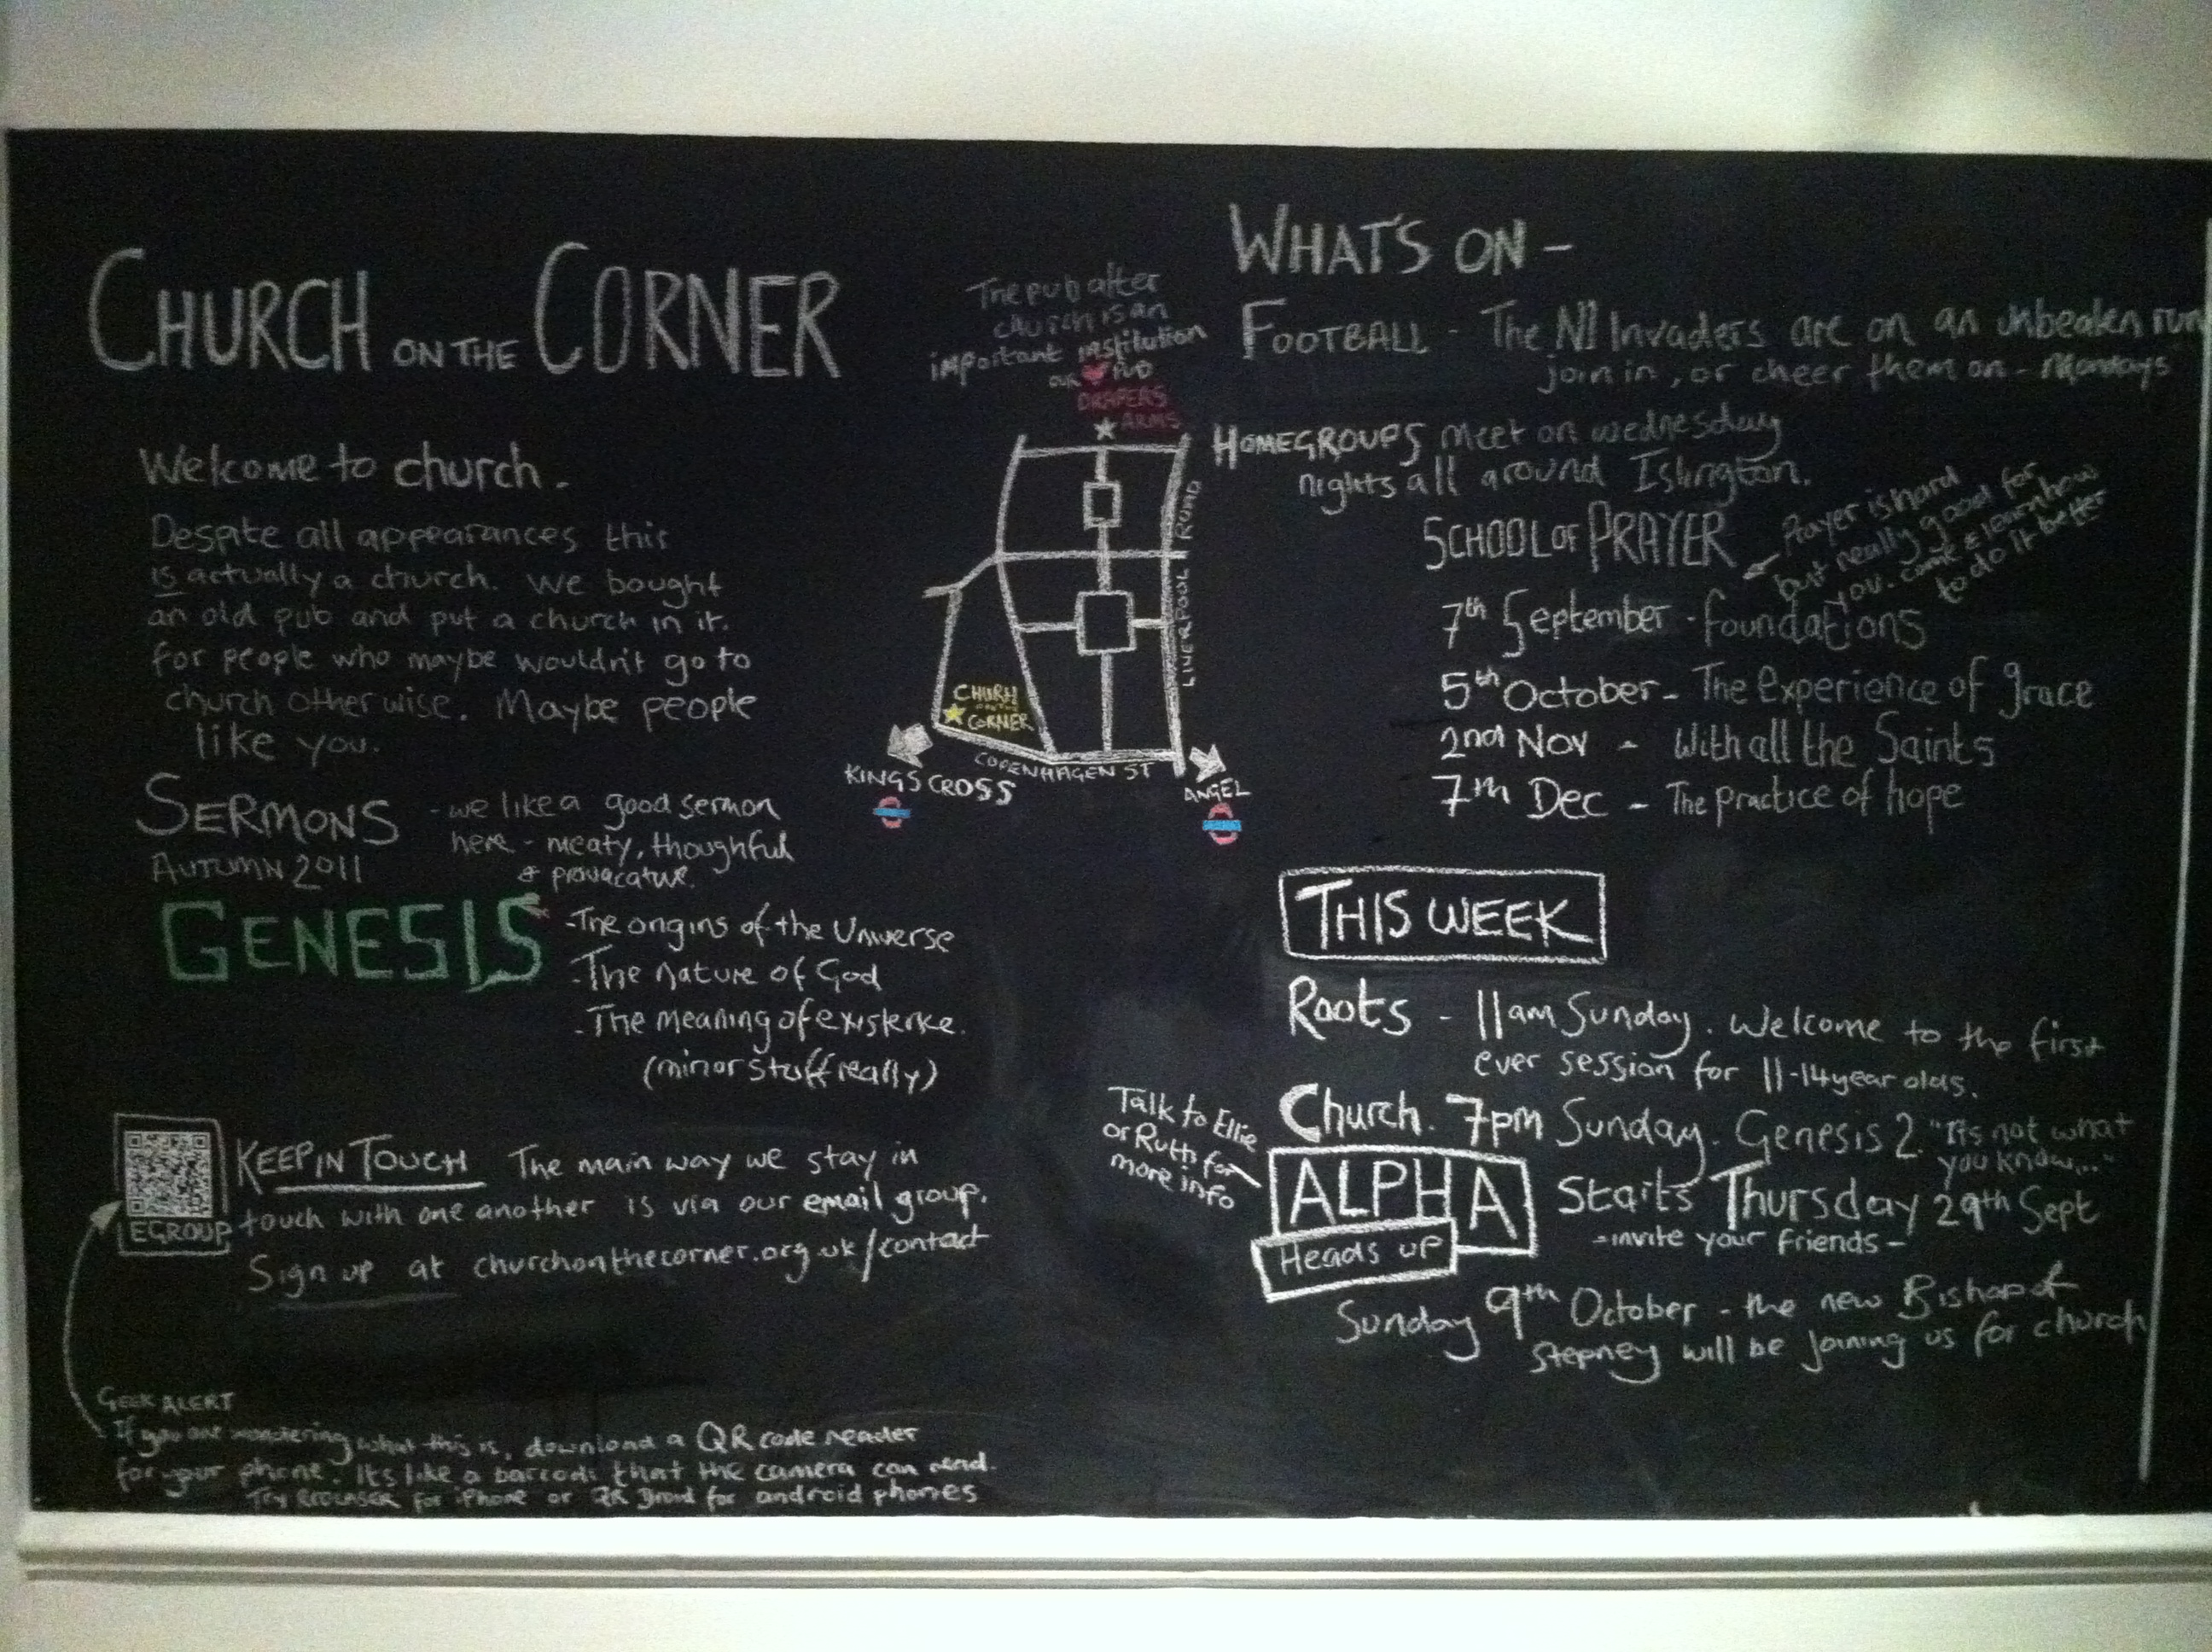 CHURCH ON THE CORNER
Welcome to church.
Despite all appearances this
is actually a church. We bought
an old pub and put a church in it.
for people who maybe wouldn't go to
church otherwise. Maybe people
like you.
SERMONS
AUTUMN 2011
- we like a good sermon
here - meaty, thoughtful
& provacative.
GENESIS
- The origins of the Universe
- The nature of God
- The meaning of existence.
(minor stuff really)
EGROUP
KEEP IN TOUCH The main way we stay in
touch with one another is via our email group.
Sign up at churchonthecorner.org.uk/contact
GEEK ALERT
If you are wondering what this is, download a QR code reader
for your phone. Its like a barcode that the camera can read.
Try REDLASER for iPhone or QR Droid for android phones
The pub after
church is an
important institution
our ❤ PUB
DRAPERS
ARMS
LIVERPOOL ROAD
CHURH
ON THE
CORNER
COPENHAGEN ST
KINGS CROSS
ANGEL
WHAT'S ON -
FOOTBALL - The N1 Invaders are on an unbeaten run
join in, or cheer them on - Mondays
HOMEGROUPS meet on wednesday
nights all around Islington.
SCHOOL OF PRAYER
Prayer is hard
but really good for
you. come & learn how
to do it better
7th September - foundations
5th October - The experience of grace
2nd Nov - With all the Saints
7th Dec - The practice of hope
THIS WEEK
Roots - 11am Sunday. Welcome to the first
ever session for 11-14 year olds.
Church. 7pm Sunday. Genesis 2. "Its not what
you know..."
Talk to Ellie
or Ruth for
more info
ALPHA Starts Thursday 29th Sept
- invite your friends -
Heads up
Sunday 9th October - the new Bishop of
Stepney will be joining us for church